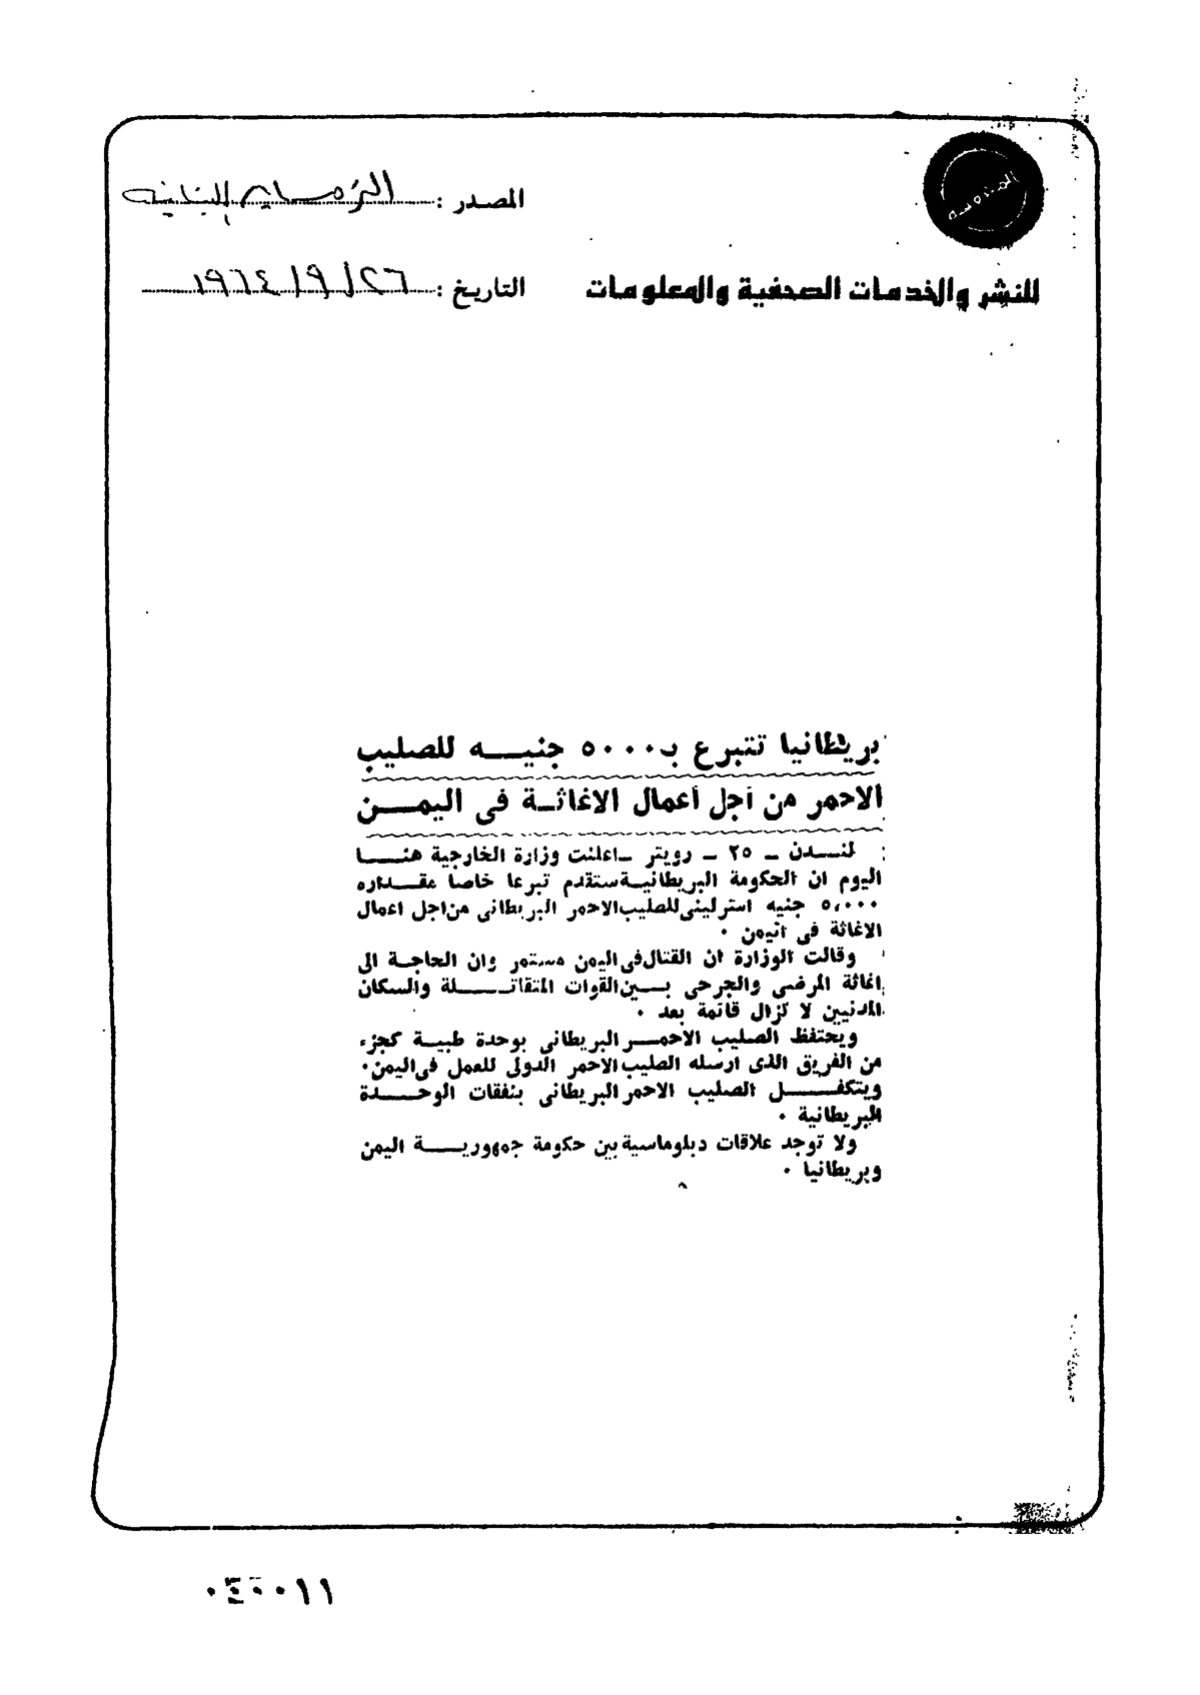 المصدر : الزمان اللبنانية
للنشر والخدمات الصحفية والمعلومات
التاريخ : ٢٦/٩/١٩٦٤
بريطانيا تتبرع بـ٥٠٠٠ جنيـــه للصليب
الاحمر من أجل أعمال الاغاثــة فى اليمــــن
لنـــدن ـ ٢٥ ـ رويتر ـ اعلنت وزارة الخارجية هنـــا
اليوم ان الحكومة البريطانية ستقدم تبرعا خاصا مقـــداره
٥,٠٠٠ جنيه استرلينى للصليب الاحمر البريطانى من اجل اعمال
الاغاثة فى اليمن .
وقالت الوزارة ان القتال فى اليمن مستمر وان الحاجــة الى
اغاثة المرضى والجرحى بـــين القوات المتقاتـــلة والسكان
المدنيين لا تزال قائمة بعد .
ويحتفظ الصليب الاحمــر البريطانى بوحدة طبيــة كجزء
من الفريق الذى ارسله الصليب الاحمر الدولى للعمل فى اليمن .
ويتكفـــل الصليب الاحمر البريطانى بنفقات الوحـــدة
البريطانية .
ولا توجد علاقات دبلوماسية بين حكومة جمهوريـــة اليمن
وبريطانيا .
٠٤٠٠١١